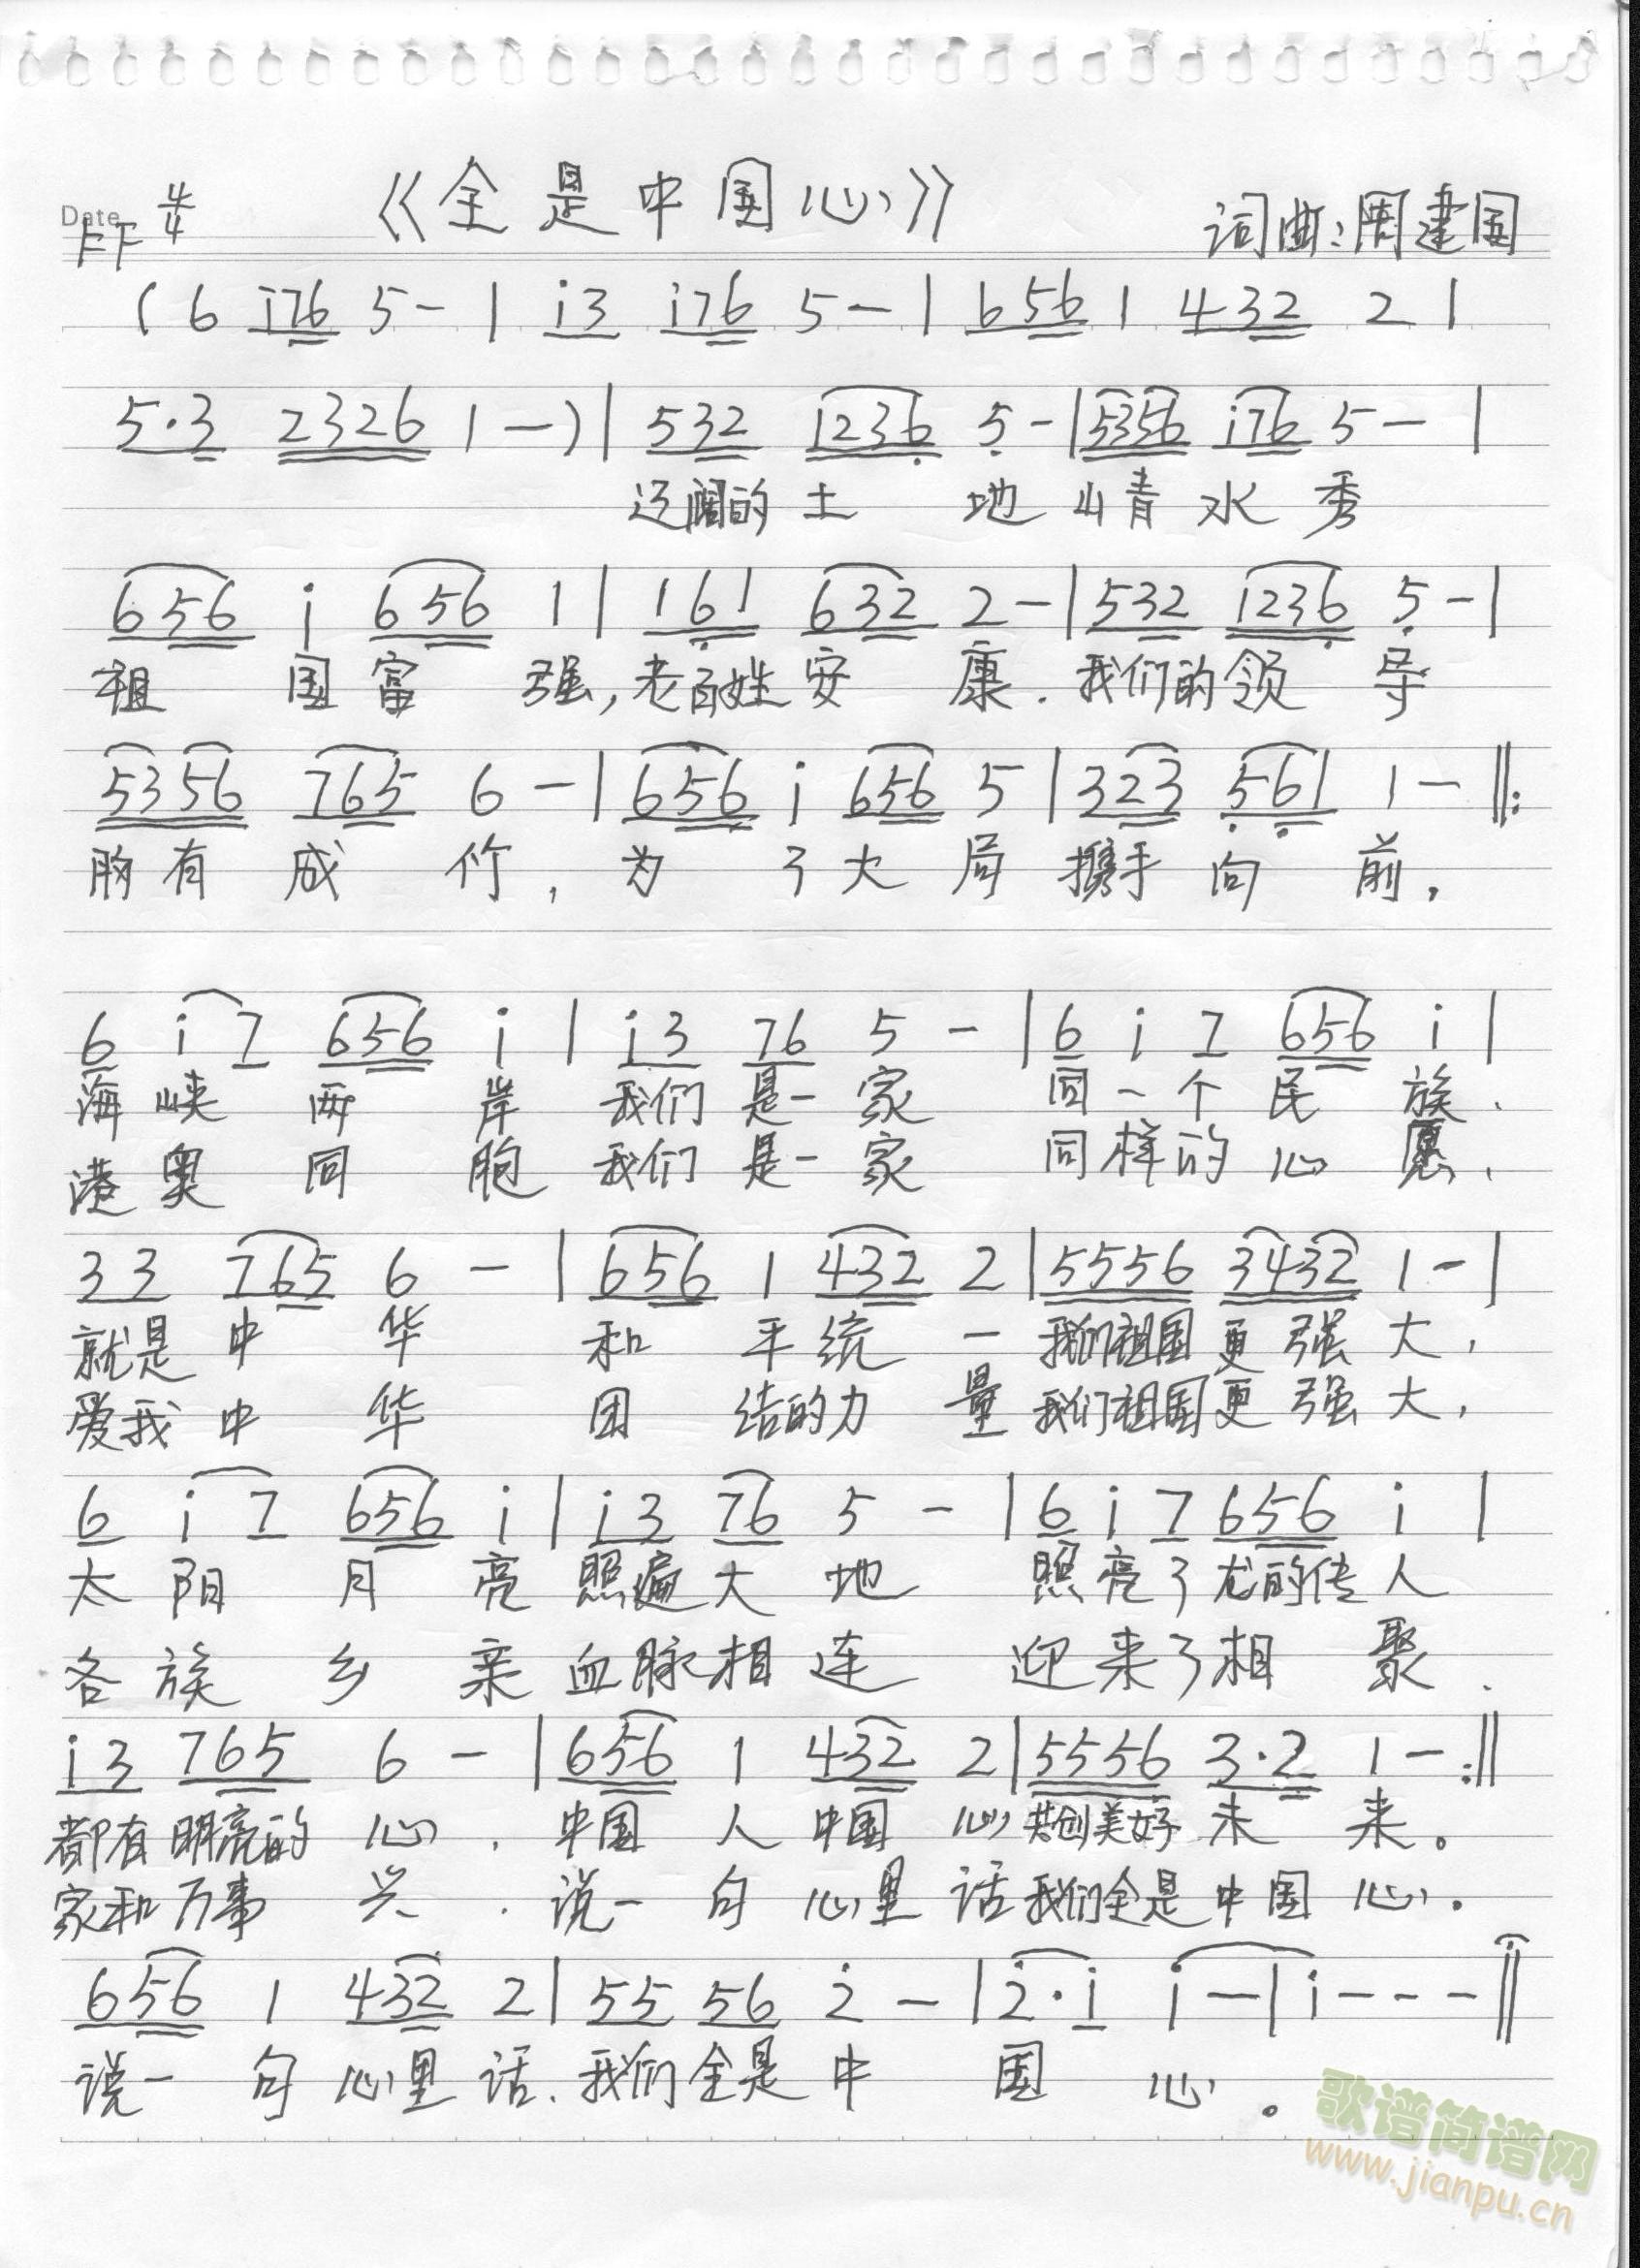 Date
F 4/4 《全是中国心》 词曲:周建国
( 6 i76 5 - | i3 i76 5 - | 656 1 432 2 |
5·3 2326 1 - ) | 532 1236 5 - | 5356 i76 5 - |
辽阔的土地山青水秀
656 i 656 1 | 161 632 2 - | 532 1236 5 - |
祖国富强,老百姓安康.我们的领导
5356 765 6 - | 656 i 656 5 | 323 561 1 - ‖:
胸有成竹,为了大局携手向前,
6 i 7 656 i | i3 76 5 - | 6 i 7 656 i |
海峡两岸我们是一家同一个民族、
港奥同胞我们是一家同样的心愿、
33 765 6 - | 656 1 432 2 | 5556 3432 1 - |
就是中华和平统一我们祖国更强大,
爱我中华团结的力量我们祖国更强大,
6 i 7 656 i | i3 76 5 - | 6 i 7 656 i |
太阳月亮照遍大地照亮了龙的传人
各族乡亲血脉相连迎来了相聚.
i3 765 6 - | 656 1 432 2 | 5556 3·2 1 - :‖
都有明亮的心.中国人中国心共创美好未来。
家和万事兴.说一句心里话我们全是中国心。
656 1 432 2 | 55 56 2 - | 2·i i - | i - - - ‖
说一句心里话、我们全是中国心。
歌谱简谱网
www.jianpu.cn